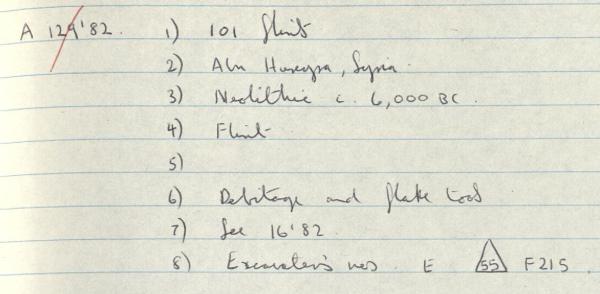 A 129'82. 1) 101 flints
2) Abu Hureyra, Syria.
3) Neolithic c. 6,000 BC.
4) Flint
5)
6) Debitage and flake tools
7) See 16'82.
8) Excavator's nos. E 55 F215